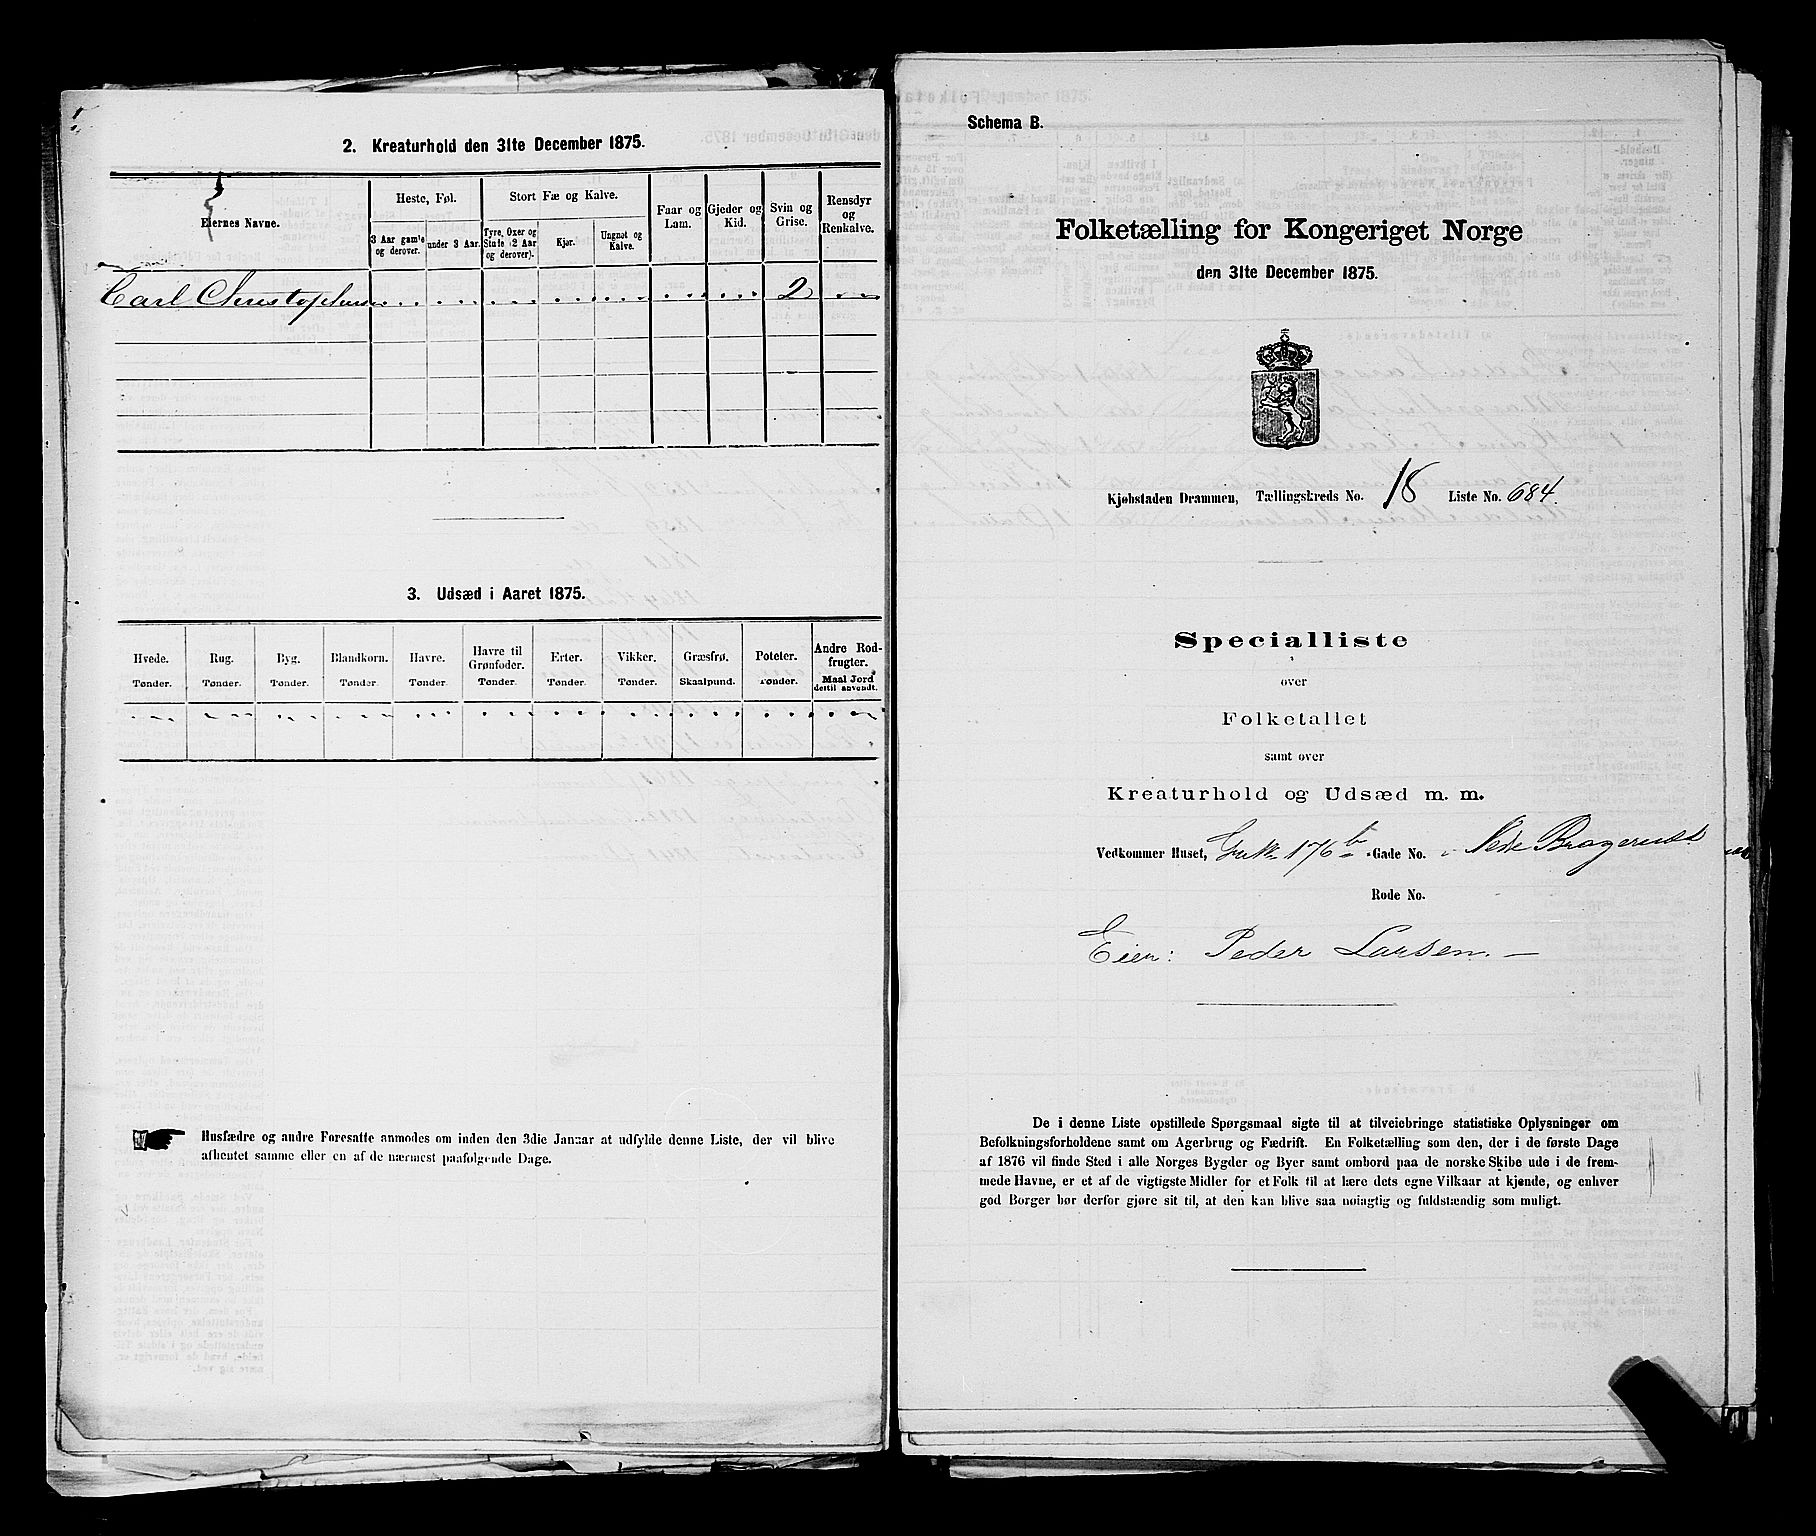 2. Kreaturhold den 31te December 1875.
Eiernes Navne.
Heste, Føl.
Stort Fæ og Kalve.
Faar og Lam.
Gjeder og Kid.
Svin og Grise.
Rensdyr og Renkalve.
3 Aar gamle og derover.
under 3 Aar.
Tyre, Oxer og Stude (2 Aar og derover).
Kjør.
Ungnøt og Kalve.
Carl Christophersen 2
3. Udsæd i Aaret 1875.
Hvede. Rug. Byg. Blandkorn. Havre. Havre til Grønfoder. Erter. Vikker. Græsfrø. Poteter. Andre Rodfrugter.
Tønder. Tønder. Tønder. Tønder. Tønder. Tønder. Tønder. Tønder. Skaalpund. Tønder. Maal Jord dertil anvendt.
Husfædre og andre Foresatte anmodes om inden den 3die Januar at udfylde denne Liste, der vil blive
afhentet samme eller en af de nærmest paafølgende Dage.
Schema B.
Folketælling for Kongeriget Norge
den 31te December 1875.
Kjøbstaden Drammen, Tællingskreds No. 18 Liste No. 684.
Specialliste
over
Folketallet
samt over
Kreaturhold og Udsæd m. m.
Vedkommer Huset, 176 b Gade No. Nedre Bragernes
Rode No.
Eier: Peder Larsen.
De i denne Liste opstillede Spørgsmaal sigte til at tilveiebringe statistiske Oplysninger om
Befolkningsforholdene samt om Agerbrug og Fædrift. En Folketælling som den, der i de første Dage
af 1876 vil finde Sted i alle Norges Bygder og Byer samt ombord paa de norske Skibe ude i de frem-
mede Havne, er et af de vigtigste Midler for et Folk til at lære dets egne Vilkaar at kjende, og enhver
god Borger bør derfor gjøre sit til, at den kan blive saa nøiagtig og fuldstændig som muligt.